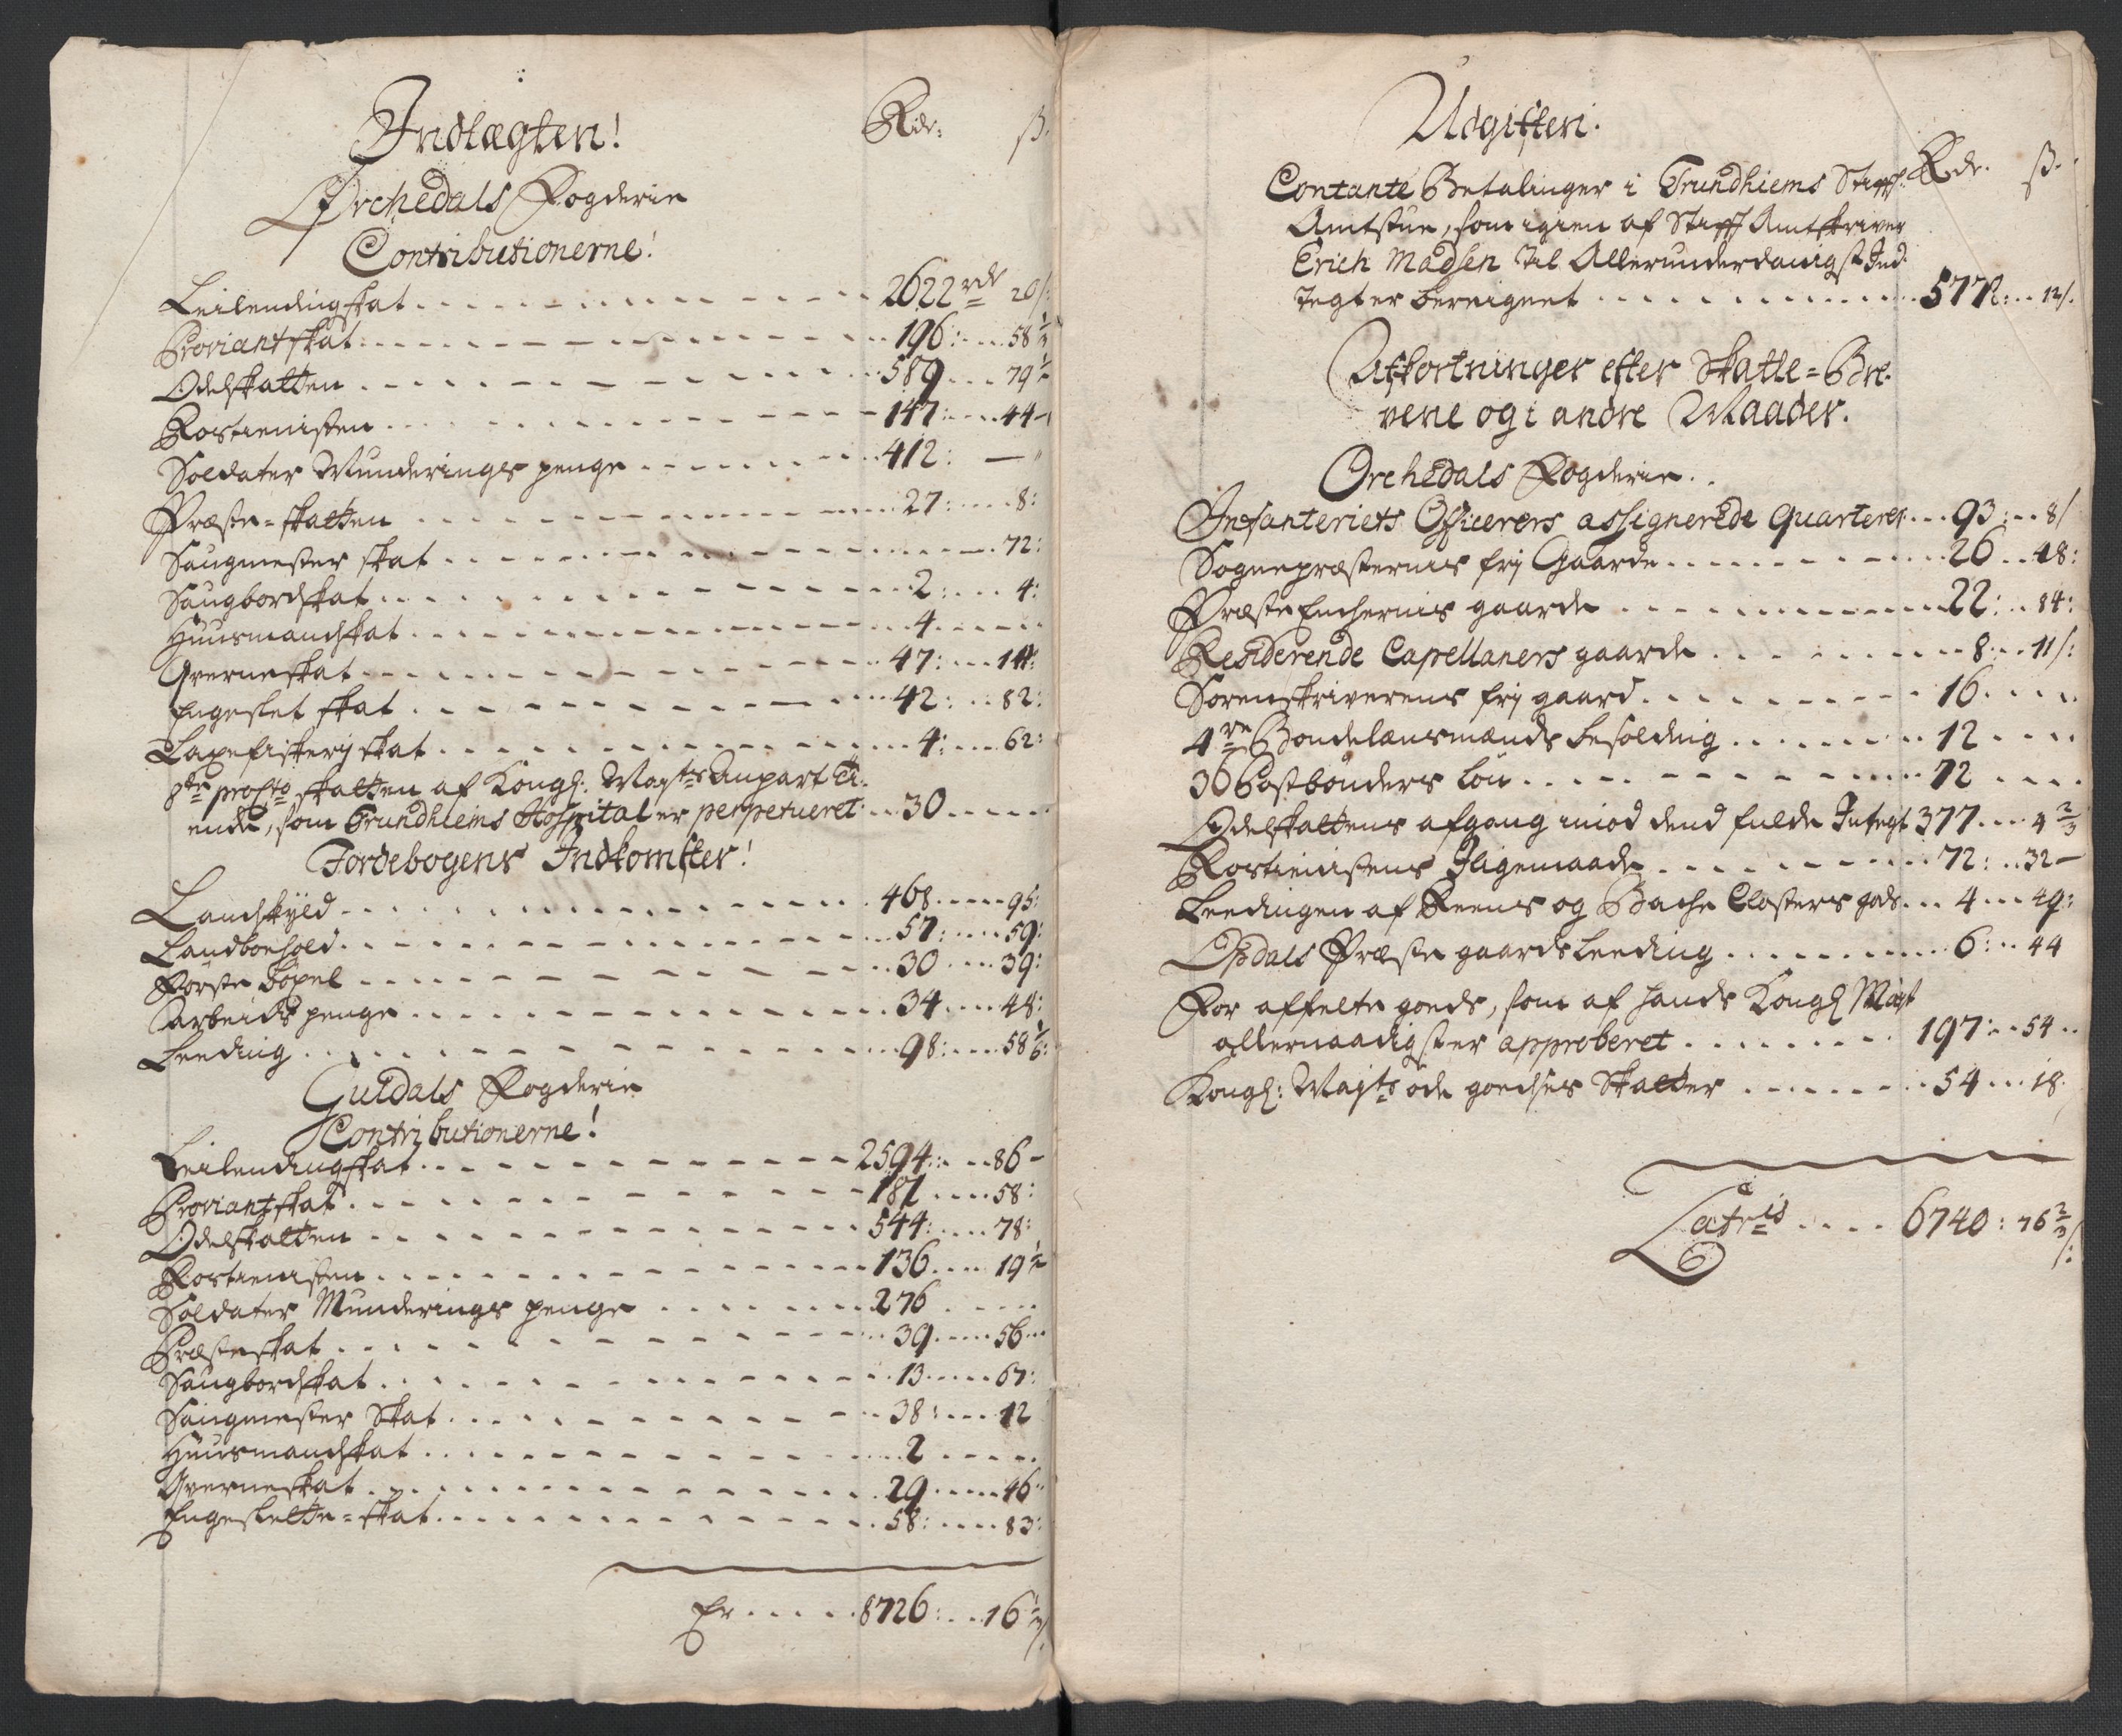 Indtægten!
Rdr: ß.
Ørchedals Fogderie
Contributionerne!
Leilendingskat 2622 rdr 20 ß:
Proviantskat 196: 58 1/3
Odelskatten 589 79 1/2
Rostienisten 147: 44
Soldater Munderings penge 412: — "
Præste-skatten 27: 8:
Saugmester skat 72:
Saugbordskat 2: 4:
Huusmandskat 4
Qverneskat 47: 14:
Engeslet skat 42: 82:
Laxefiskerj skat 4: 62:
skatten af Kongl: Mayts Anpart Ti-
ende, som Trundhiems Hospital er perpetueret 30
Jordebogens Indkomster!
Landskyld 468 95:
Landboehold 57: 59:
Første Bøxel 30 39:
Arbeids penge 34 48:
Leeding 98: 58 1/6:
Guldals Fogderie
Contributionerne!
Leilendingskat 2594: 86
Proviantskat 181 58:
Odelskatten 544: 78:
Rostienisten 136 19 1/2
Soldater Munderings penge 276
Præsteskat 39 56
Saugbordskat 13 67:
Saugmester Skat 38: 12
Huusmandskat 2
Qverneskat 29 46
Engeslette-skat 58: 83:
Er 8726: 16 1/2 ß.
Udgiften.
Rdr. ß.
Contante Betalinger i Trundhiems Stiffts
Amtstue, som igien af Stifft Amtskriver
Erich Madsen til Allerunderdanigst Ind-
tegt er beregnet 5772: 12 ß.
Afkortninger efter Skatte=Bre-
vene og i andre Maader.
Orchedals Fogderie.
Infanteriets Officerers assignerede quarterer 93: 8 ß
Sognepræsternis frj Gaarde 26 48:
Præste Enchernis gaarde 22: 84:
Residerende Capellaners gaarde 8: 11 ß:
Sorenskriverens frj gaard 16
4re Bondelænsmænds besolding 12
36 Postbønders løn 72
Odelskattens afgang imod dend fulde Integt 377 4 2/3
Rostienistens Iligemaade 72: 32
Leedingen af Reens og Bache Closters gods 4 49:
Opdals Præste gaards Leeding 6: 44
For affelte goeds, som af hands Kongl Mayt
allernaadigst er approberet 197: 54
Kongl: Mayts øde goedses Skatter 54 18.
Lateris 6740: 76 2/3 ß: